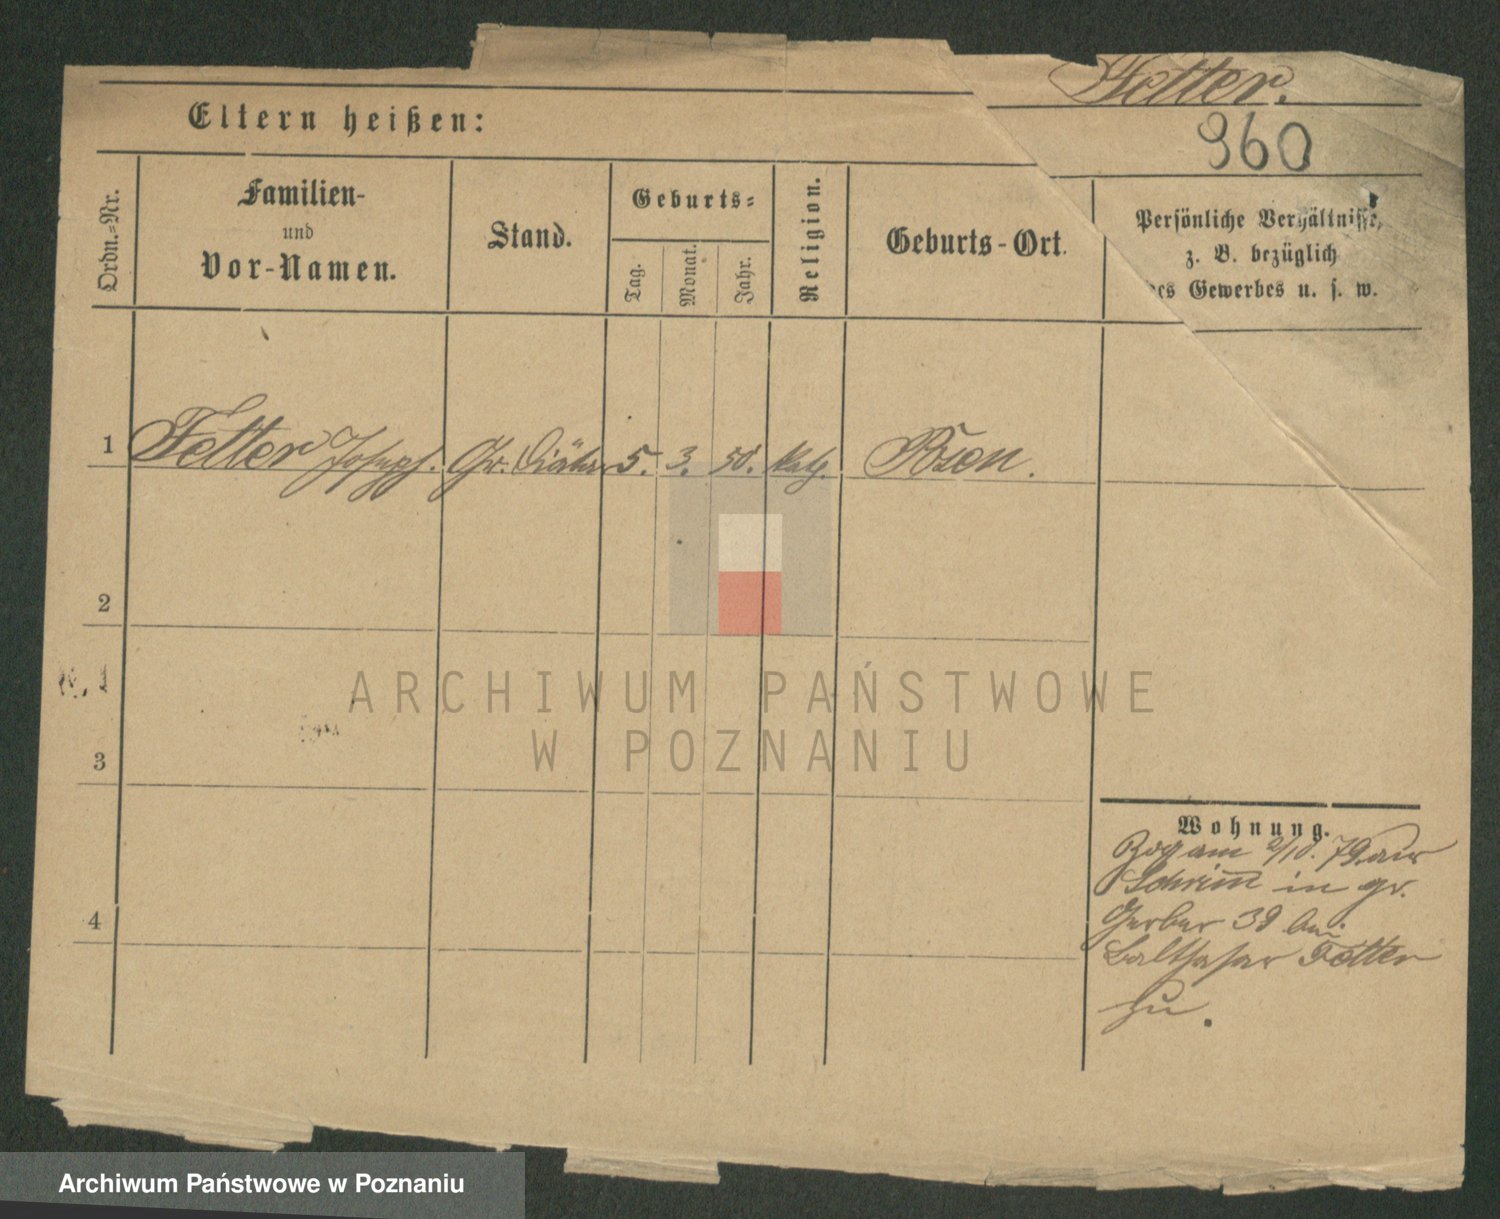 Fetter.
960
Eltern heißen:
Ordn.=Nr.
Familien-
und
Vor-Namen.
Stand.
Geburts=
Tag.
Monat.
Jahr.
Religion.
Geburts-Ort.
Persönliche Verhältnisse,
z. B. bezüglich
des Gewerbes u. s. w.
1 Fetter Joseph. Ger. Diätar 5. 3. 50. Kath. Posen.
2
3
4
Wohnung.
Zog am 2/10. 79 aus
Schrimm in gr.
Gerber 39 bei
Balthasar Fetter
zu.
ARCHIWUM PAŃSTWOWE
W POZNANIU
Archiwum Państwowe w Poznaniu